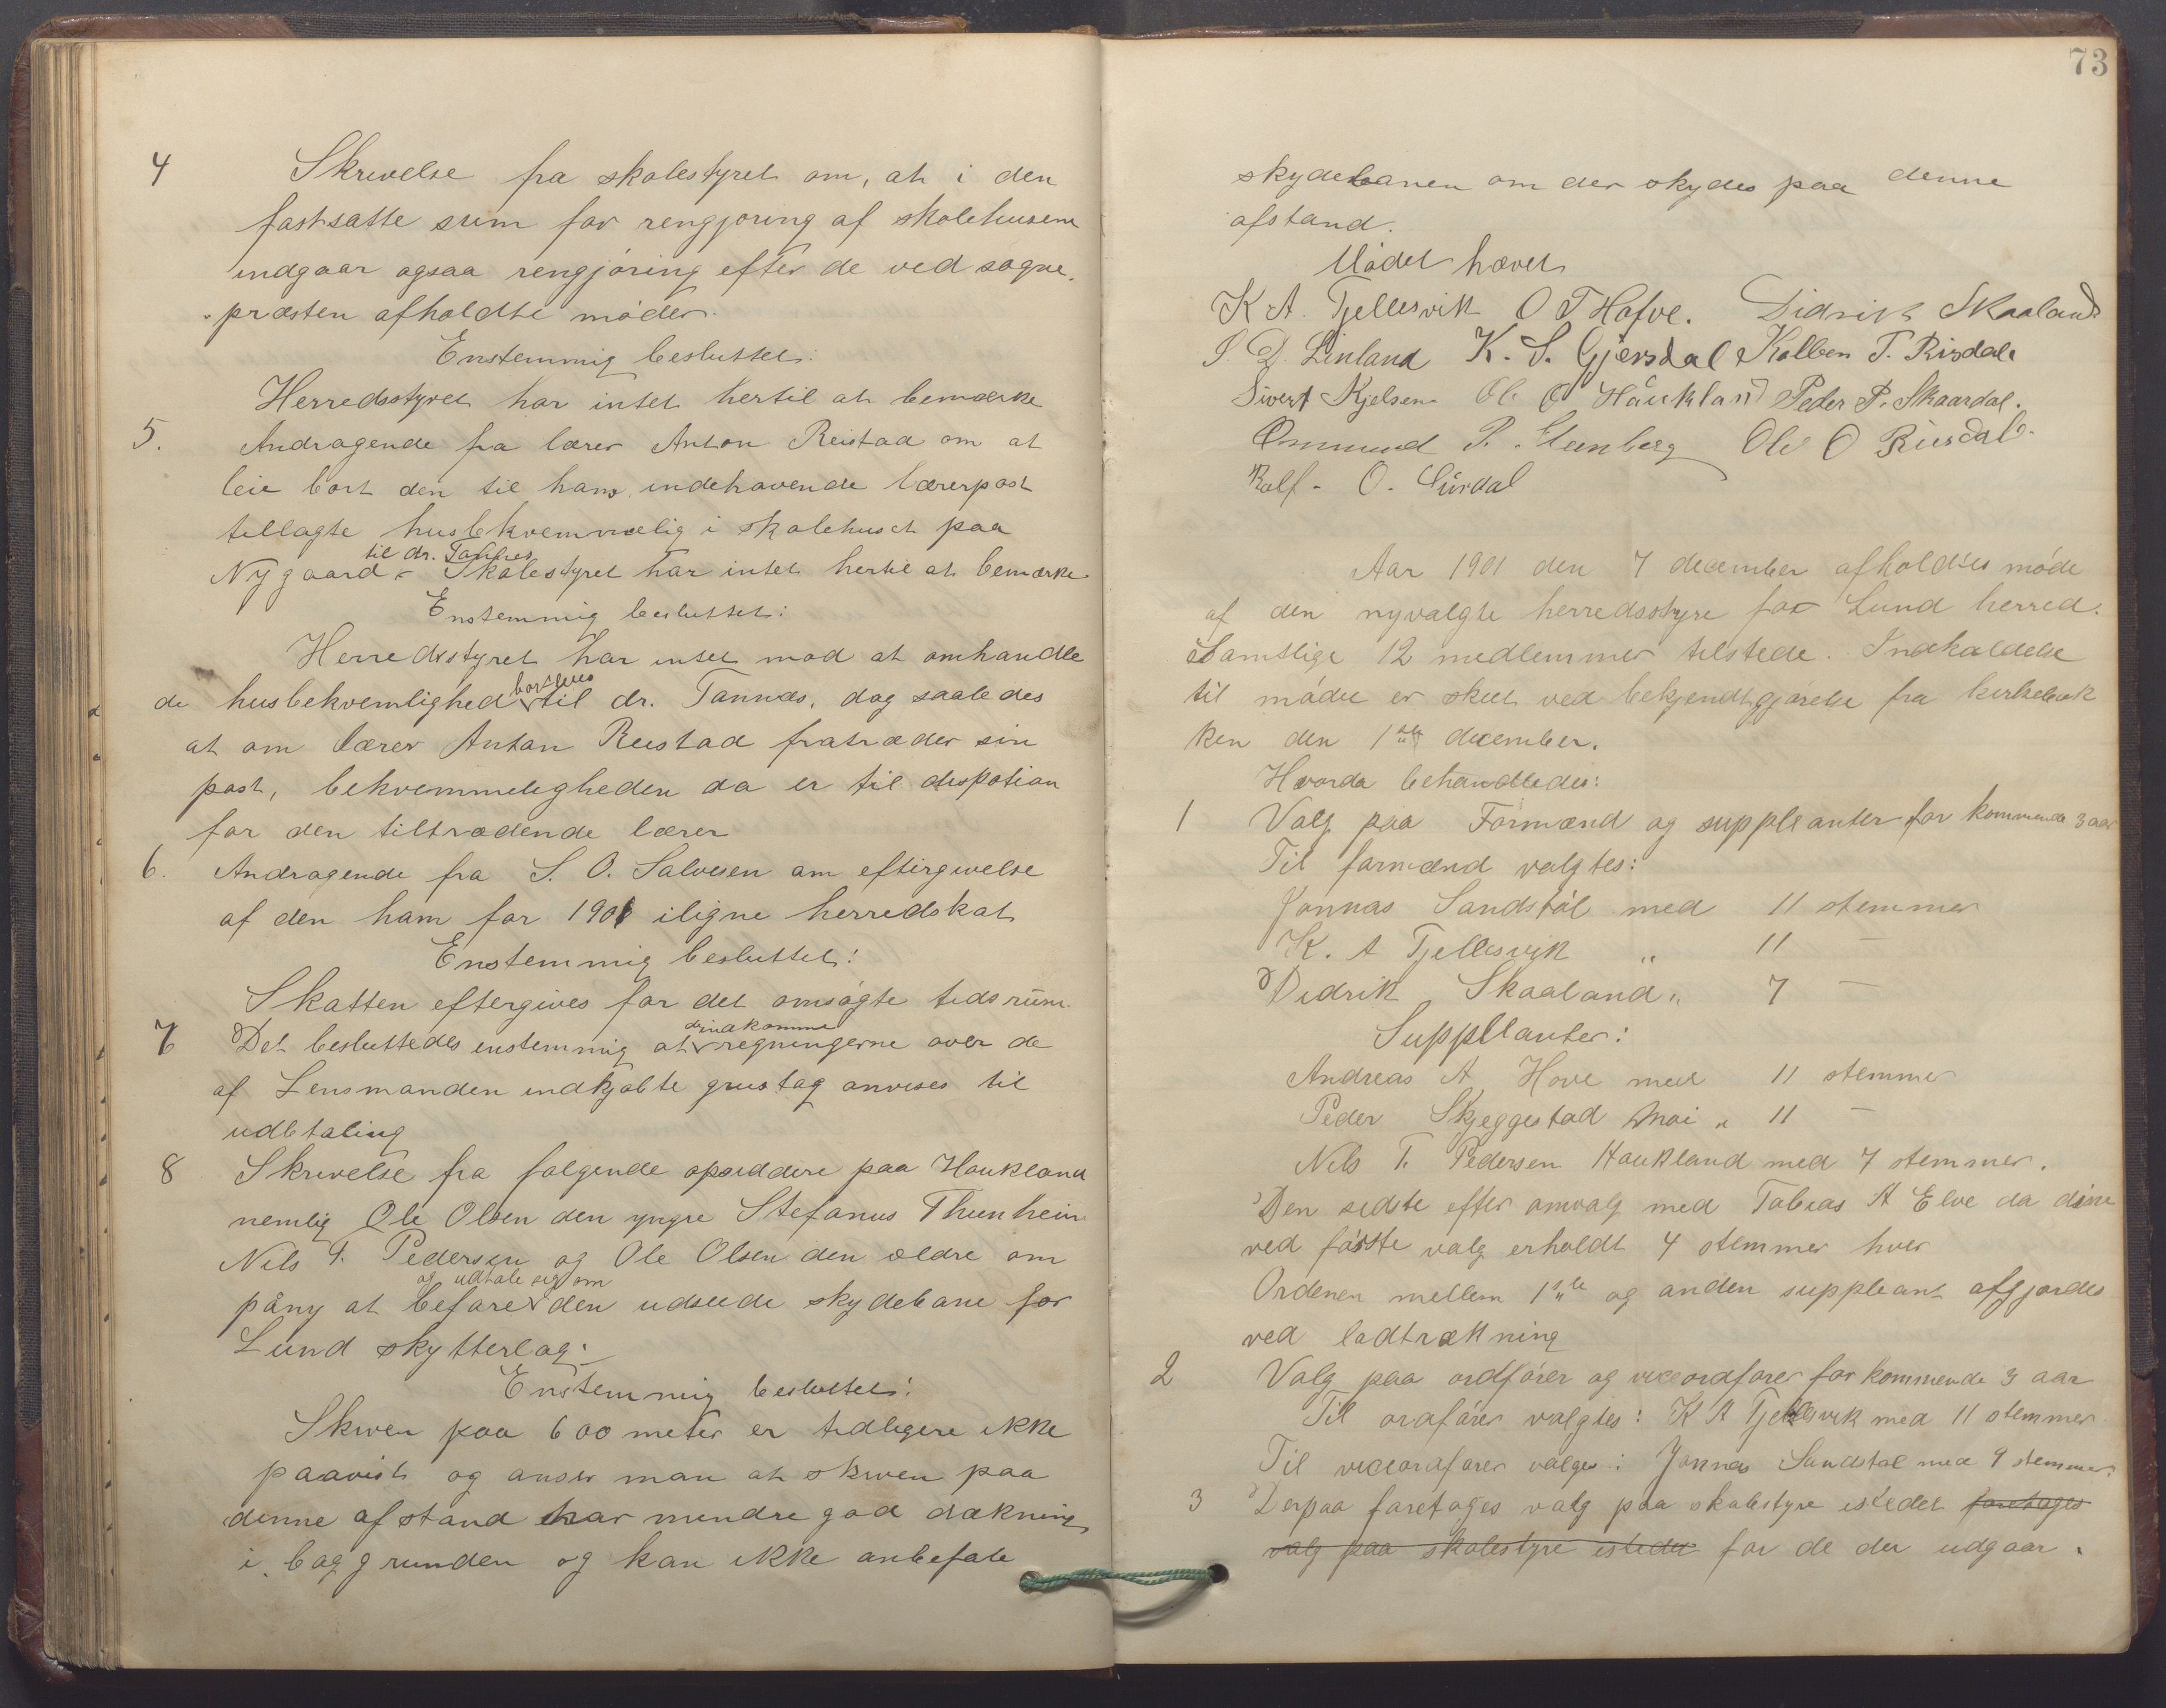 4 Skrivelse fra skolestyret om, at i den
fastsatte sum for rengjøring af skolehusene
indgaar ogsaa rengjøring efter de ved sogne-
præsten afholdte møder.
Enstemmig besluttet:
Herredsstyret har intet hertil at bemærke
5. Andragende fra lærer Anton Reistad om at
leie bort den til hans indehavende lærerpost
tillagte husbekvemmelig i skolehuset paa
til dr. Tannæs
Nygaard - Skolestyret har intet hertil at bemærke
Enstemmig besluttet:
Herredsstyret har intet mod at omhandle
bortleies
de husbekvemlighed til dr. Tannæs, dog saaledes
at om lærer Anton Reistad fratræder sin
post, bekvemmeligheden da er til dispotion
for den tiltrædende lærer
6. Andragende fra S. O. Salvesen om eftergivelse
af den ham for 1901 iligne herredskat
Enstemmig besluttet:
Skatten eftergives for det omsøgte tidsrum.
indkomne
7 Det besluttedes enstemmig at regningerne over de
af Lensmanden indkjøbte grustag anvises til
udbtaling
8 Skrivelse fra følgende opsiddere paa Haukland
nemlig Ole Olsen den yngre Stefanus Thunheim
Nils T. Pedersen og Ole Olsen den ældre om
og udtale sig om
påny at befare den udseede skydebane for
Lund skytterlag.
Enstemmig besluttet:
Skiven paa 600 meter er tidligere ikke
paavist og anser man at skiven paa
denne afstand har mindre god dækning
i baggrunden og kan ikke anbefale
73
skydebanen om der skydes paa denne
afstand.
Mødet hævet
K A. Tjellesvik O T Hofve. Didrik Skaaland
S. D. Linland K. S. Gjersdal Kolben T. Risdale
Sivert Kjelsen Ole O Håukland Peder P. Skaardal.
Ommund P. Steenberg Ole O Riisdal.
Rolf. O. Surdal
Aar 1901 den 7 december afholdtes møde
af den nyvalgte herredsstyre for Lund herred.
Samtlige 12 medlemmer tilstede. Indkaldelse
til mødet er skeet ved bekjendtgjørelse fra kirkebak
ken den 1ste december.
Hvorda behandledes:
1 Valg paa Formænd og suppleanter for kommende 3 aar
Til formænd valgtes:
Jonnas Sandstøl med 11 stemmer
K. A Tjellesvik " 11 —
Didrik Skaaland " 7 —
Supplanter:
Andreas A Hove med 11 stemmer
Peder Skjeggestad Moi " 11 —
Nils T. Pedersen Haukland med 7 stemmer.
Den sidste efter omvalg med Tobias A Elve da disse
ved første valg erholdt 4 stemmer hver
Ordenen mellem 1ste og anden suppleant afgjordes
ved lodtrækning
2 Valg paa ordfører og viceordfører for kommende 3 aar
Til ordfører valgtes: K A Tjellesvik med 11 stemmer
Til viceordfører valges: Jonnas Sandstøl med 9 stemmer.
3 Derpaa foretages valg paa skolestyre istedet foretages
valg paa skolestyre istedet for de der udgaar.